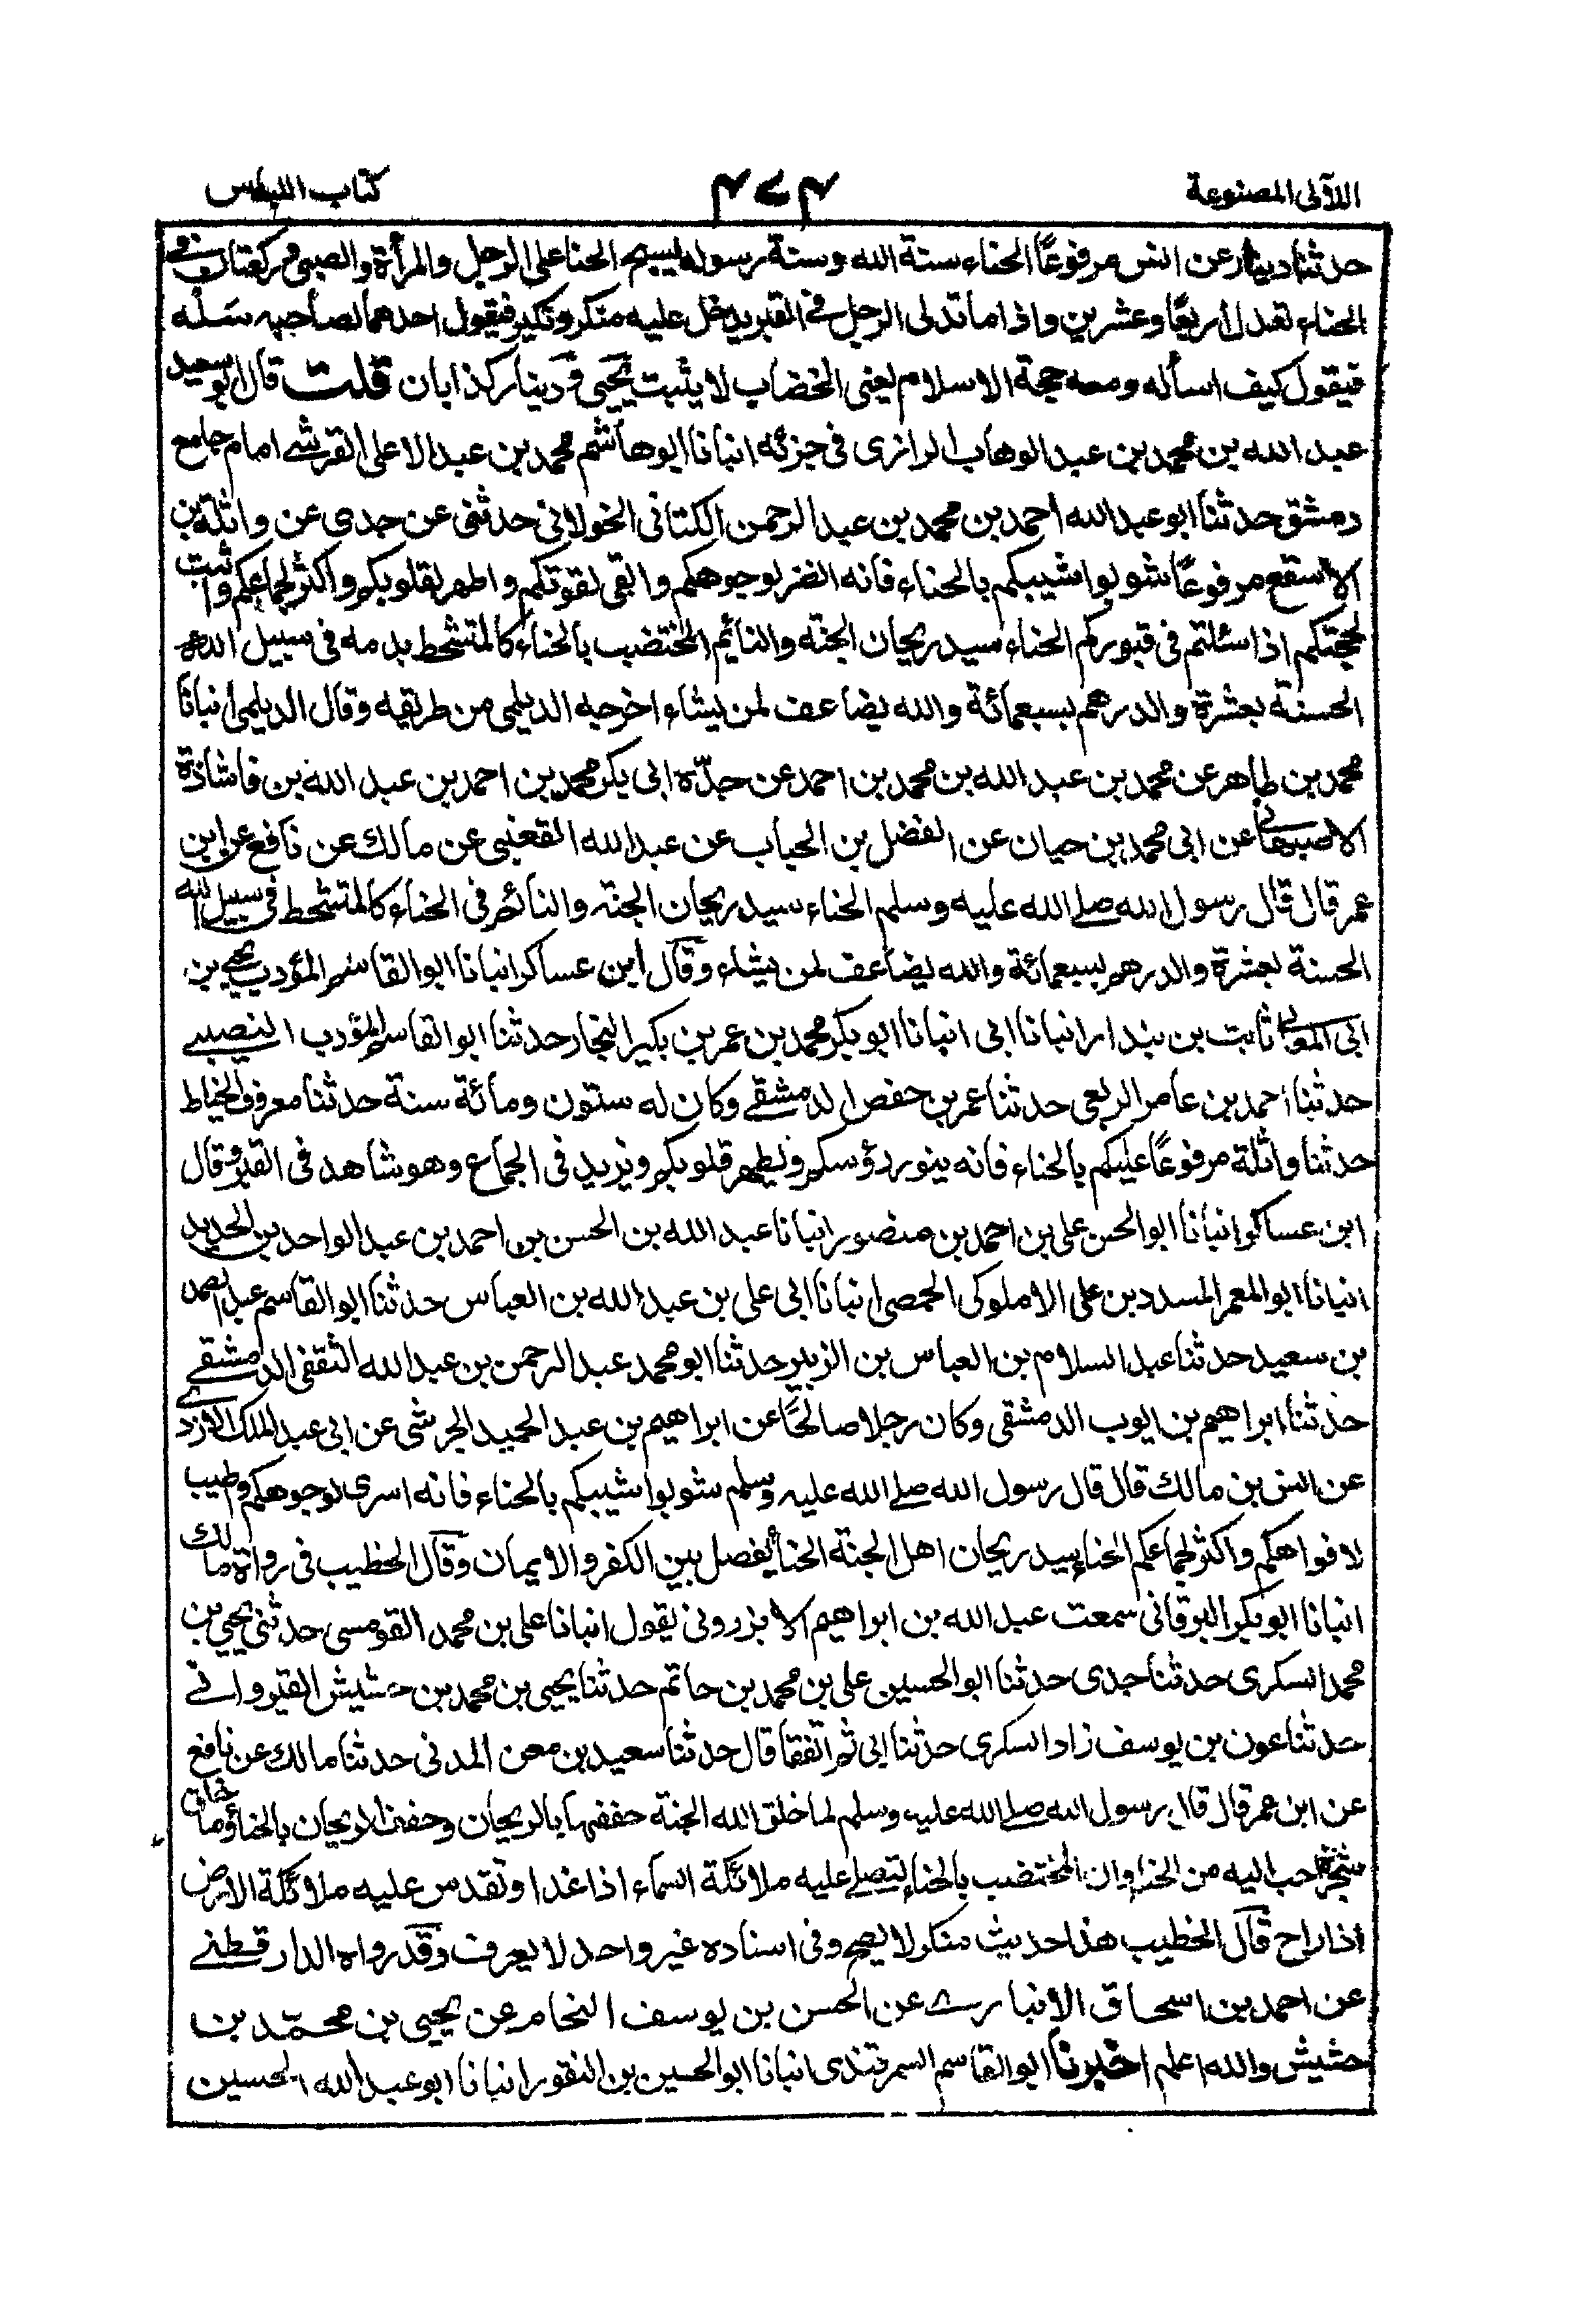 اللآلى المصنوعة ٤٧٤ كتاب اللباس
حدثنا دينار عن انس مرفوعًا الحناء سنة الله وسنة رسوله ليسبح الحنا على الرجل والمرأة والصبى وركعتان فى
الحناء تعدل أربعًا وعشرين واذا ما تدلى الرجل فى القبر يدخل عليه منكر ونكير فيقول احدهما لصاحبه سَلْه
فيقول كيف اسأله ومعه حجة الاسلام يعنى الخضاب لا يثبت يحيى ودينار كذابان قلت قال ابو سعيد
عبد الله بن محمد بن عبد الوهاب الرازى فى جزئه انبانا ابو هاشم محمد بن عبد الاعلى القرشى امام جامع
دمشق حدثنا ابو عبد الله احمد بن محمد بن عبد الرحمن الكتانى الخولانى حدثنى عن جدى عن واثلة بن
الاسقع مرفوعًا شوبوا شيبكم بالحناء فانه انضر لوجوهكم وانقى لقوتكم واطهر لقلوبكم واكثر لجماعكم واثبت
لحجتكم اذا سئلتم فى قبوركم الحناء سيد ريحان الجنة والنائم المختضب بالحناء كالمتشحط بدمه فى سبيل الله
الحسنة بعشرة والدرهم بسبعمائة والله يضاعف لمن يشاء اخرجه الديلمى من طريقه وقال الديلمى انبانا
محمد بن طاهر عن محمد بن عبد الله بن محمد بن احمد عن جدّه ابى بكر محمد بن احمد بن عبد الله بن فاشاذة
الاصبهانى عن ابى محمد بن حيان عن الفضل بن الحباب عن عبد الله القعنبى عن مالك عن نافع عن ابن
عمر قال قال رسول الله صلى الله عليه وسلم الحناء سيد ريحان الجنة والنائم فى الحناء كالمتشحط فى سبيل الله
الحسنة بعشرة والدرهم بسبعمائة والله يضاعف لمن يشاء وقال ابن عساكر انبانا ابو القاسم المؤدب يحيى بن
ابى المعالى ثابت بن بندار انبانا ابى انبانا ابو بكر محمد بن عمر بن بكير النجار حدثنا ابو القاسم المؤدب النصيبى
حدثنا احمد بن عامر الربعى حدثنا عمر بن حفص الدمشقى وكان له ستون ومائة سنة حدثنا معروف الخياط
حدثنا واثلة مرفوعًا عليكم بالحناء فانه ينور رؤسكم ويطهر قلوبكم ويزيد فى الجماع وهو شاهد فى القبر وقال
ابن عساكر انبانا ابو الحسن على بن احمد بن منصور انبانا عبد الله بن الحسن بن احمد بن عبد الواحد بن الحديد
انبانا ابو المعمر المسدد بن على الاملوكى الحمصى انبانا ابى على بن عبد الله بن العباس حدثنا ابو القاسم عبد الصمد
بن سعيد حدثنا عبد السلام بن العباس بن الزبير حدثنا ابو محمد عبد الرحمن بن عبد الله الثقفى الدمشقى
حدثنا ابراهيم بن ايوب الدمشقى وكان رجلا صالحًا عن ابراهيم بن عبد الحميد الجرشى عن ابى عبد الملك الازدى
عن انس بن مالك قال قال رسول الله صلى الله عليه وسلم شوبوا شيبكم بالحناء فانه اسرى لوجوهكم واطيب
لافواهكم واكثر لجماعكم الحناء سيد ريحان اهل الجنة الحنا يفصل بين الكفر والايمان وقال الخطيب فى رواة مالك
انبانا ابو بكر البرقانى سمعت عبد الله بن ابراهيم الابزرونى يقول انبانا على بن محمد القومسى حدثنى يحيى بن
محمد السكرى حدثنا جدى حدثنا ابو الحسين على بن محمد بن حاتم حدثنا يحيى بن محمد بن حشيش القيروانى
حدثنا عون بن يوسف زاد السكرى حدثنا ابى ثم اتفقا قال حدثنا سعيد بن معن المدنى حدثنا مالك عن نافع
عن ابن عمر قال قال رسول الله صلى الله عليه وسلم لما خلق الله الجنة حففها بالريحان وحفف الريحان بالحناء وما خلق
شجرة احب اليه من الحناء وان المختضب بالحناء لتصلى عليه ملائكة السماء اذا غدا وتقدس عليه ملائكة الارض
اذا راح قال الخطيب هذا حديث منكر لا يصح وفى اسناده غير واحد لا يعرف وقد رواه الدارقطنى
عن احمد بن اسحاق الانبارى عن الحسن بن يوسف النحام عن يحيى بن محمّد بن
حشيش والله اعلم اخبرنا ابو القاسم السمرقندى انبانا ابو الحسين بن النقور انبانا ابو عبد الله الحسين